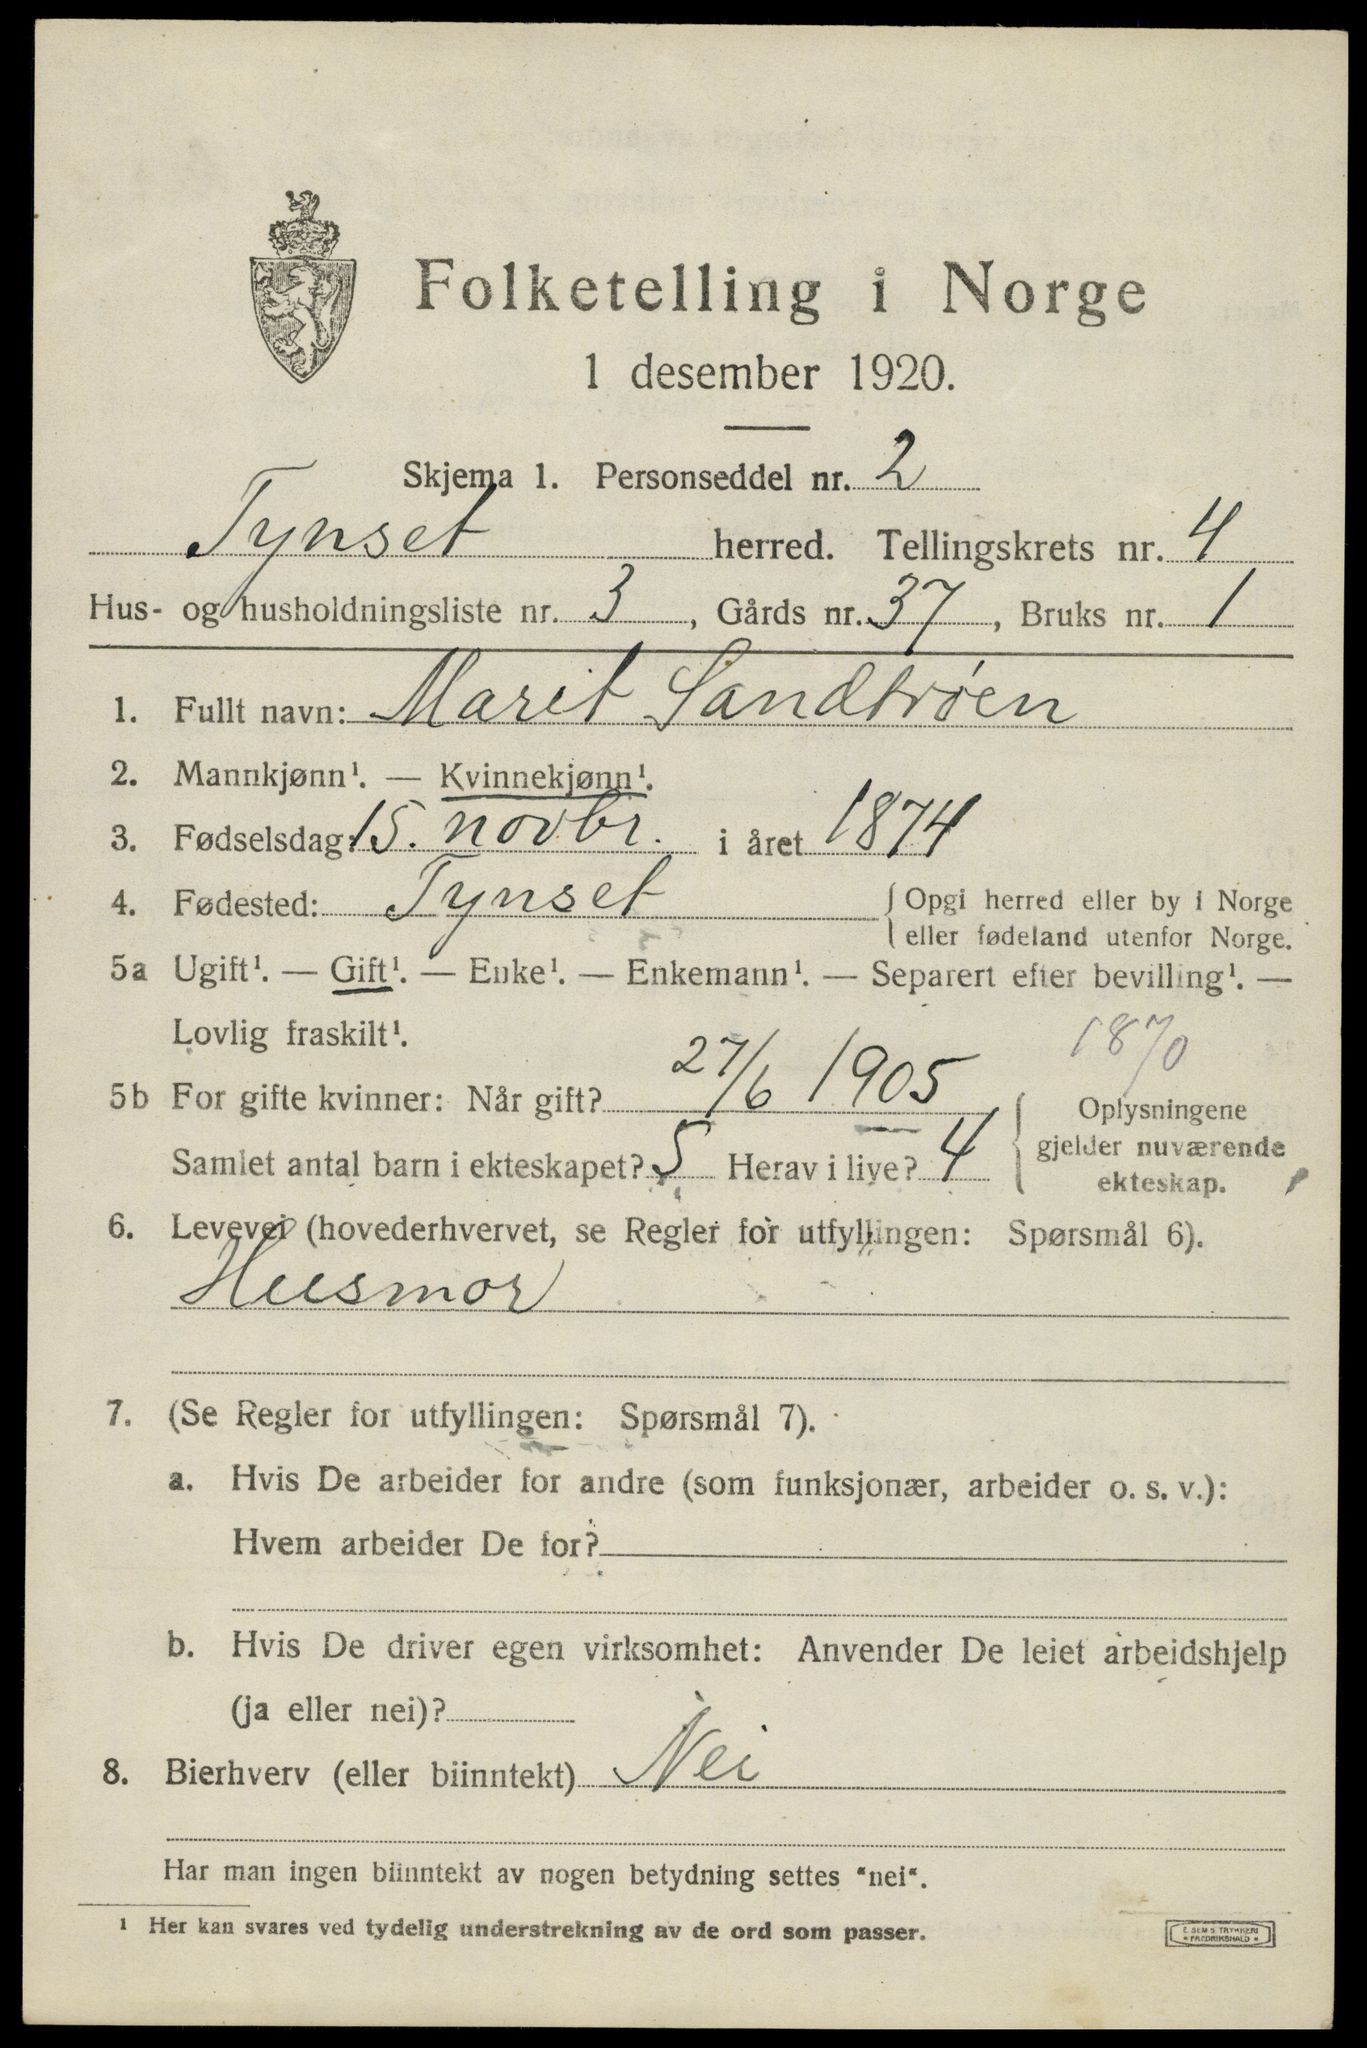 Folketelling i Norge
1 desember 1920.
Skjema 1. Personseddel nr. 2
Tynset herred. Tellingskrets nr. 4
Hus- og husholdningsliste nr. 3, Gårds nr. 37, Bruks nr. 1
1. Fullt navn: Marit Sandtrøen
2. Mannkjønn¹. — Kvinnekjønn¹.
3. Fødselsdag: 15. novbr. i året 1874
4. Fødested: Tynset { Opgi herred eller by i Norge
eller fødeland utenfor Norge.
5a Ugift¹. — Gift¹. — Enke¹. — Enkemann¹. — Separert efter bevilling¹. —
Lovlig fraskilt¹.
1870
5b For gifte kvinner: Når gift? 27/6 1905
Samlet antal barn i ekteskapet? 5 Herav i live? 4
{ Oplysningene
gjelder nuværende
ekteskap.
6. Levevei (hovederhvervet, se Regler for utfyllingen: Spørsmål 6).
Husmor
7. (Se Regler for utfyllingen: Spørsmål 7).
a. Hvis De arbeider for andre (som funksjonær, arbeider o. s. v.):
Hvem arbeider De for?
b. Hvis De driver egen virksomhet: Anvender De leiet arbeidshjelp
(ja eller nei)?
8. Bierhverv (eller biinntekt) Nei
Har man ingen biinntekt av nogen betydning settes "nei".
¹ Her kan svares ved tydelig understrekning av de ord som passer.
E. SEMS TRYKKERI
* FREDRIKSHALD *